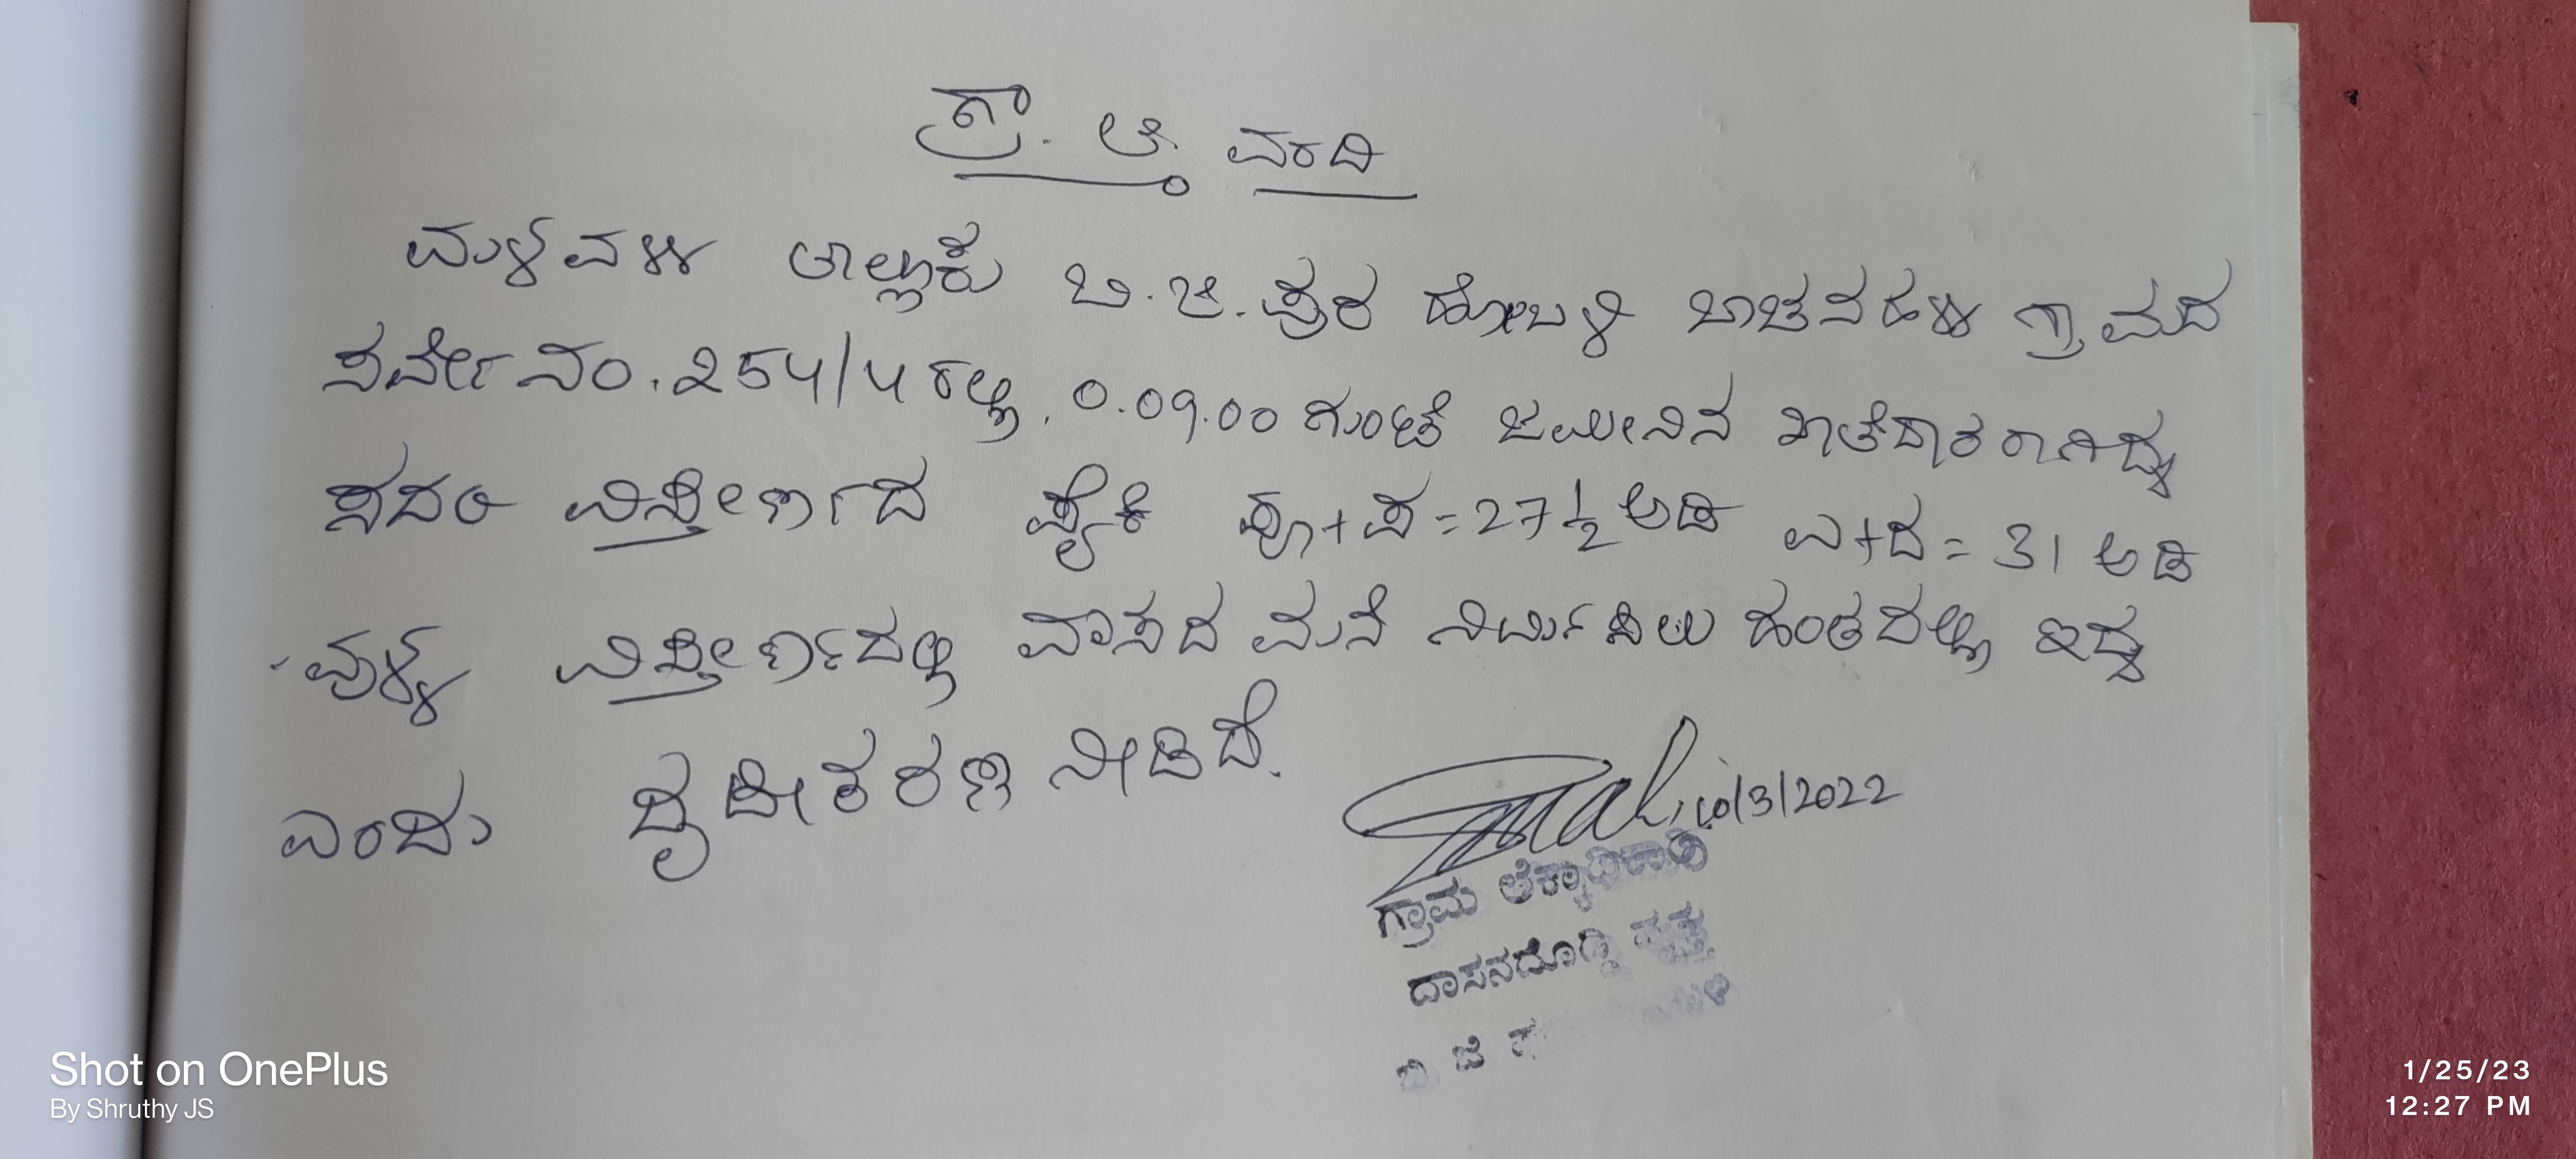 ಗ್ರಾ. ಆ. ವರದಿ
ಮಳವಳ್ಳಿ ತಾಲ್ಲೂಕು ಬಿ.ಜಿ.ಪುರ ಹೋಬಳಿ ಬಾಚನಹಳ್ಳಿ ಗ್ರಾಮದ
ಸರ್ವೇ ನಂ. 254/4 ರಲ್ಲಿ, 0.09.00 ಗುಂಟೆ ಜಮೀನಿನ ಖಾತೆದಾರರಾಗಿದ್ದು
ಸದರಿ ವಿಸ್ತೀರ್ಣದ ಪೈಕಿ ಪೂ+ಪ=27 1/2 ಅಡಿ ಉ+ದ= 31 ಅಡಿ
ವುಳ್ಳ ವಿಸ್ತೀರ್ಣದಲ್ಲಿ ವಾಸದ ಮನೆ ನಿರ್ಮಿಸಿಲು ಹಂತದಲ್ಲಿ ಇದ್ದು
ಎಂದು ದೃಢೀಕರಣ ನೀಡಿದೆ.
10/3/2022
ಗ್ರಾಮ ಲೆಕ್ಕಾಧಿಕಾರಿ
ದಾಸನದೊಡ್ಡಿ ವೃತ್ತ
ಬಿ ಜಿ
Shot on OnePlus
By Shruthy JS
1/25/23
12:27 PM